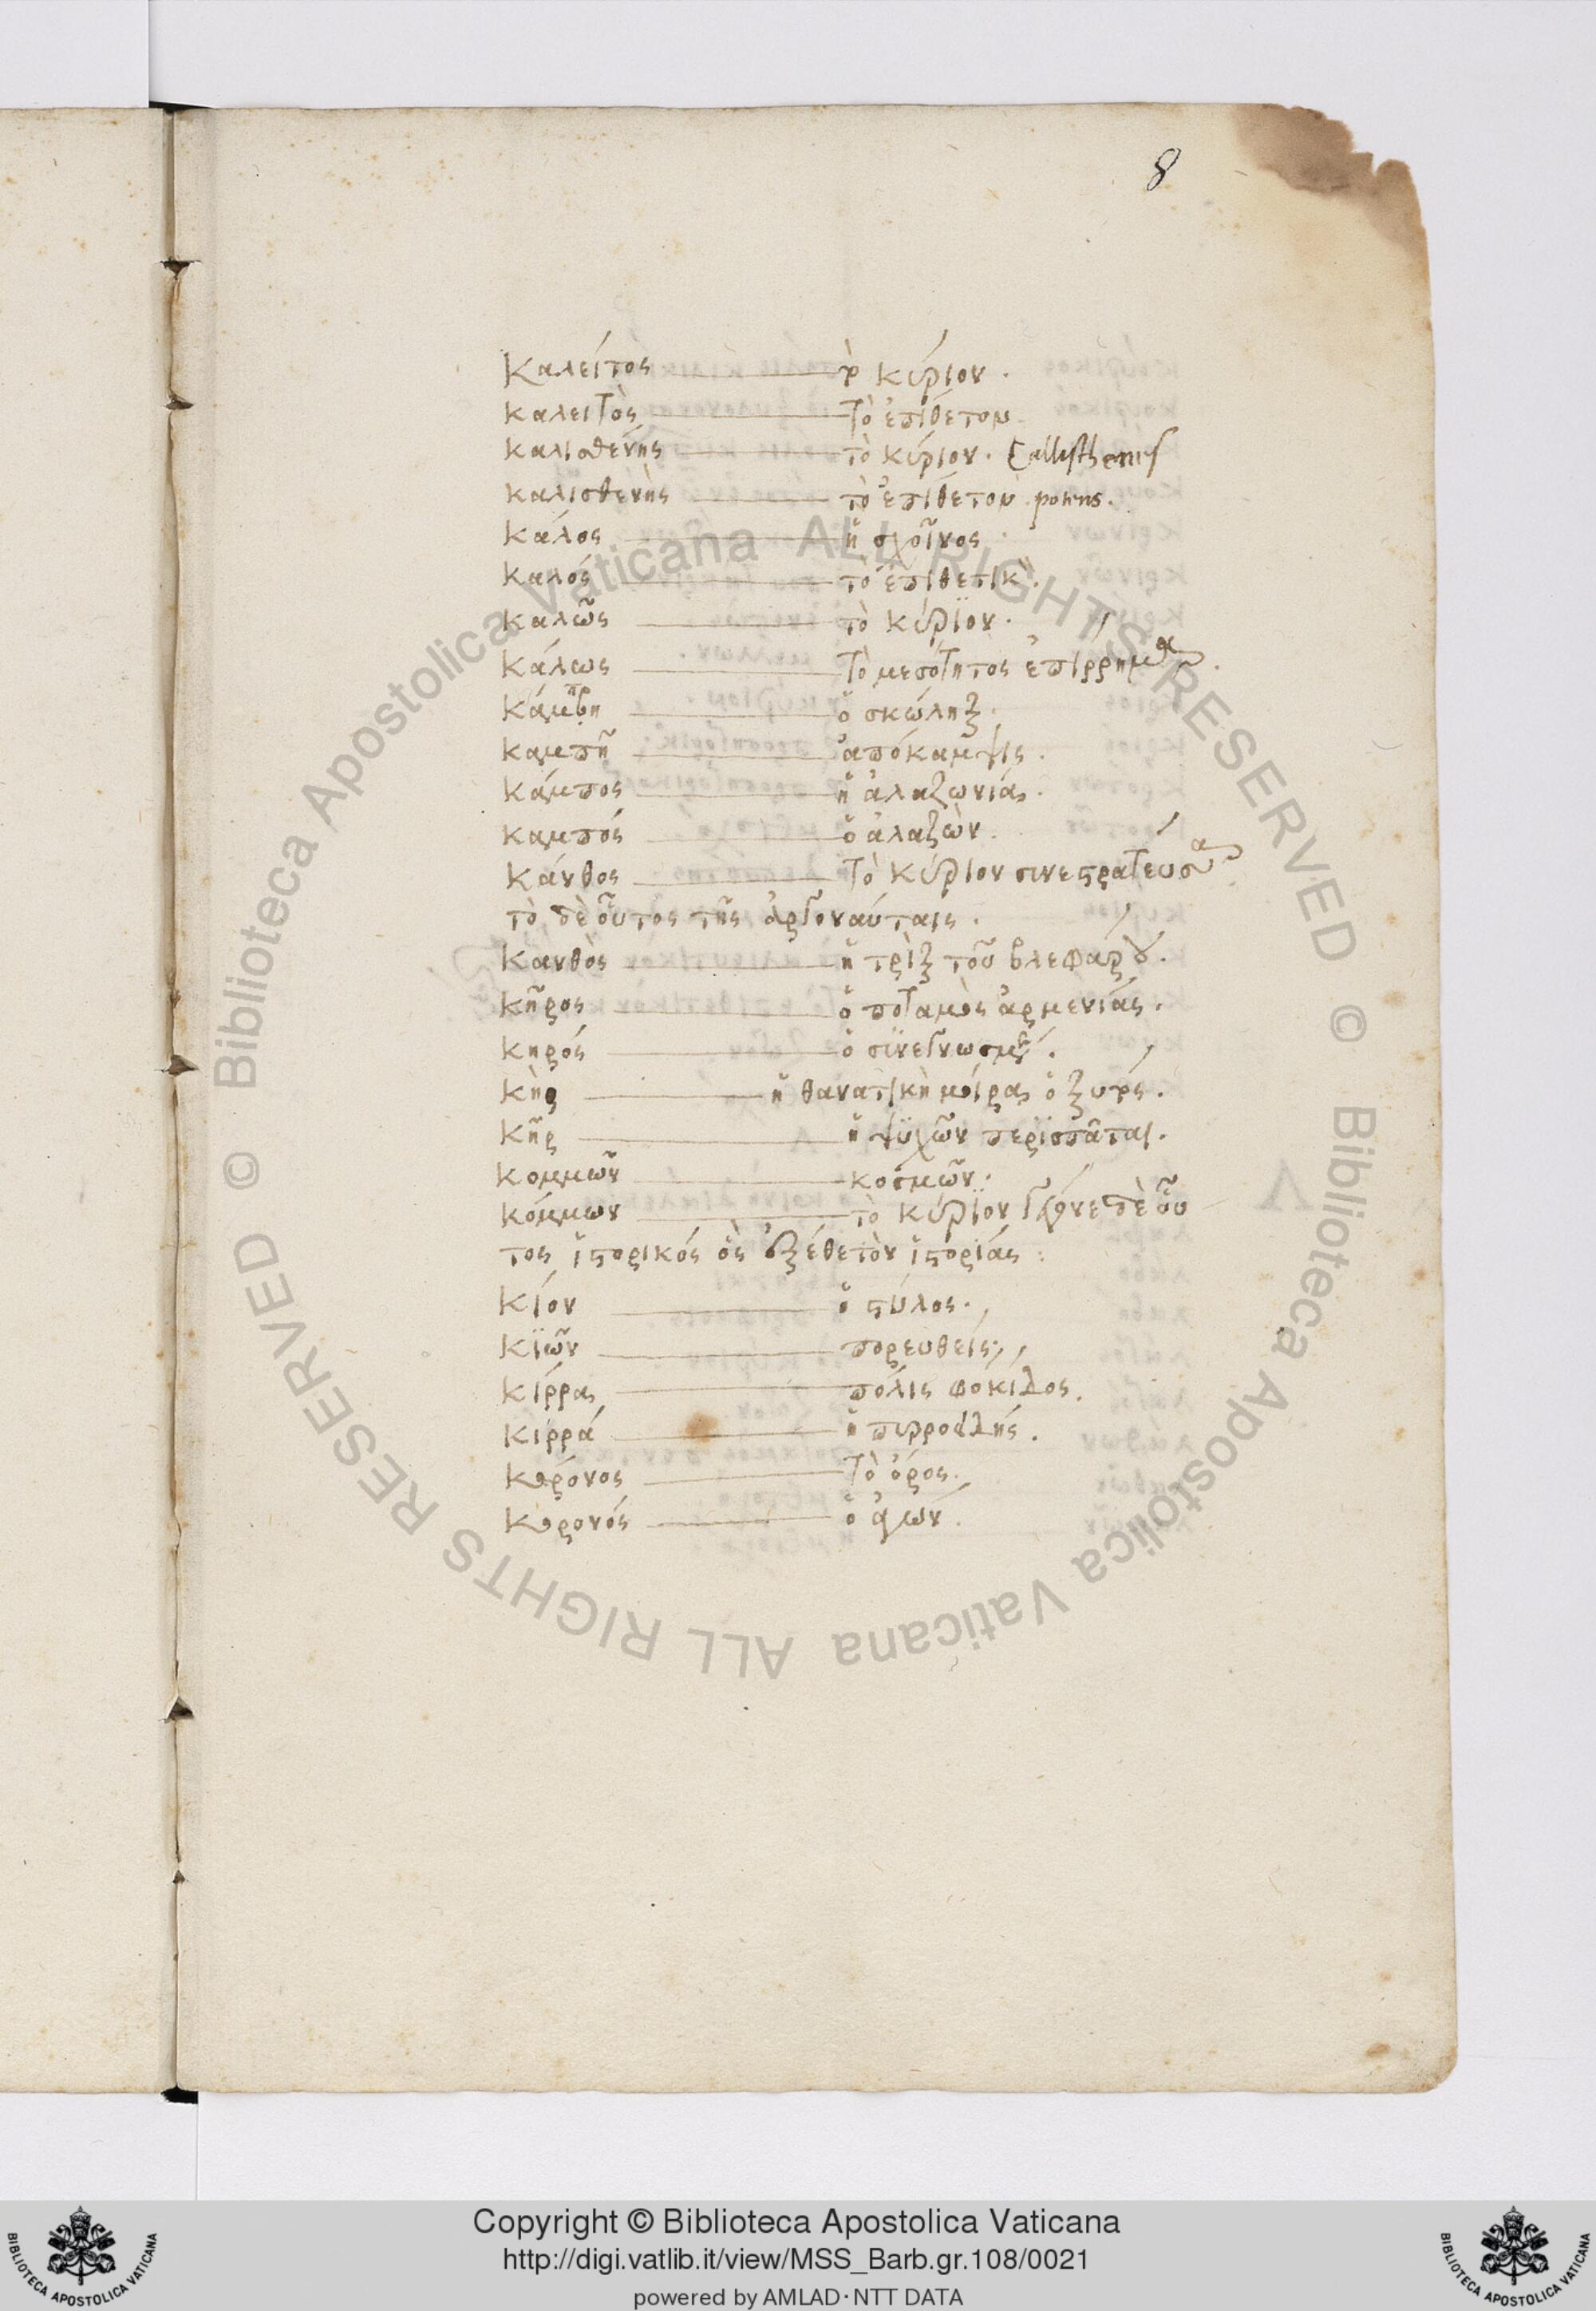 8
Καλείτος τὸ κύριον.
καλειτὸς τὸ ἐπίθετον.
καλισθένης τὸ κύριον. Callisthenes
καλισθενὴς τὸ ἐπίθετον potens.
κάλος ἡ σχοῖνος.
καλός τὸ ἐπιθετικὸ.
καλῶς τὸ κύρϊον.
κάλεως τὸ μεσότητος ἐπίρρημα.
κάμβη ὁ σκώληξ.
καμπῆ ἀπόκαμψις.
κάμπος ἡ ἀλαζωνιάς.
καμπός ὁ ἀλαζὼν.
κάνθος τὸ κύριον συνεστράτευσα
τὸ δὲ οὗτος τῆς ἀργοναύταις.
κανθὸς ἡ τρὶξ τοῦ βλεφάρου.
κῆρος ὁ ποταμὸς ἀρμενίας.
κηρός
κὴρ ἡ θανατικὴ μοίρας ὀξυρς.
κῆρ ἡ ψϋχῶν περϊσπᾶται.
κομμῶν κοσμῶν.
κόμμων τὸ κύρϊον γέγονε δὲ οὗ
τος ἱστορικός ὃς ἐξέθετὸν ἱστορίας:
κίον ὁ στύλος.
κϊῶν πορευθείς,
κίρρας πόλις φοκιδος.
κιρρά ἡ πυρροιδής.
κορόνος τὸ ὄρος.
κορονός
Copyright © Biblioteca Apostolica Vaticana
http://digi.vatlib.it/view/MSS_Barb.gr.108/0021
powered by AMLAD·NTT DATA
© Biblioteca Apostolica Vaticana ALL RIGHTS RESERVED © Biblioteca Apostolica Vaticana ALL RIGHTS RESERVED
BIBLIOTECA APOSTOLICA VATICANA
BIBLIOTECA APOSTOLICA VATICANA